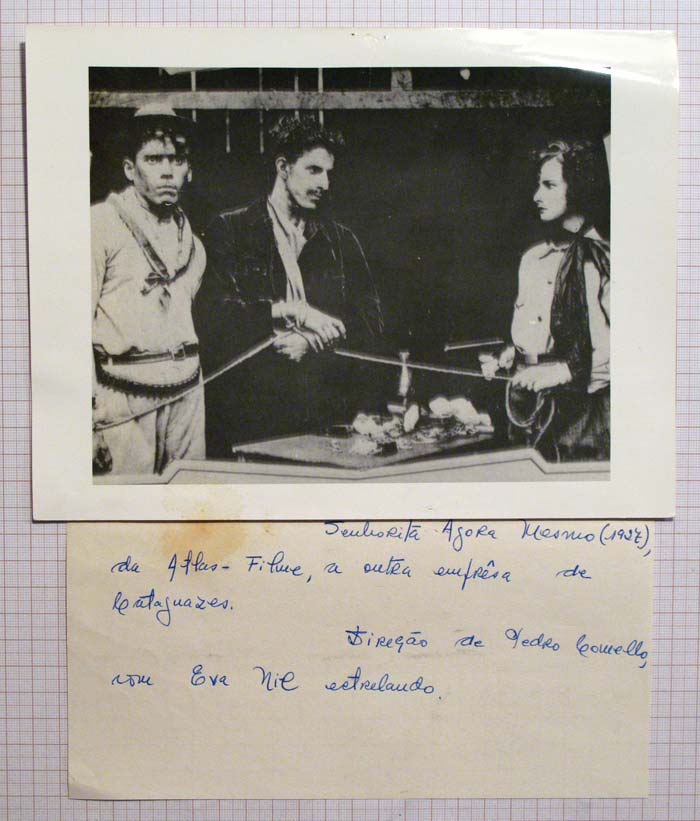 Senhorita Agora Mesmo (1927),
da Atlas-Filme, a outra emprêsa de
Cataguazes.
Direção de Pedro Comello,
com Eva Nil estrelando.